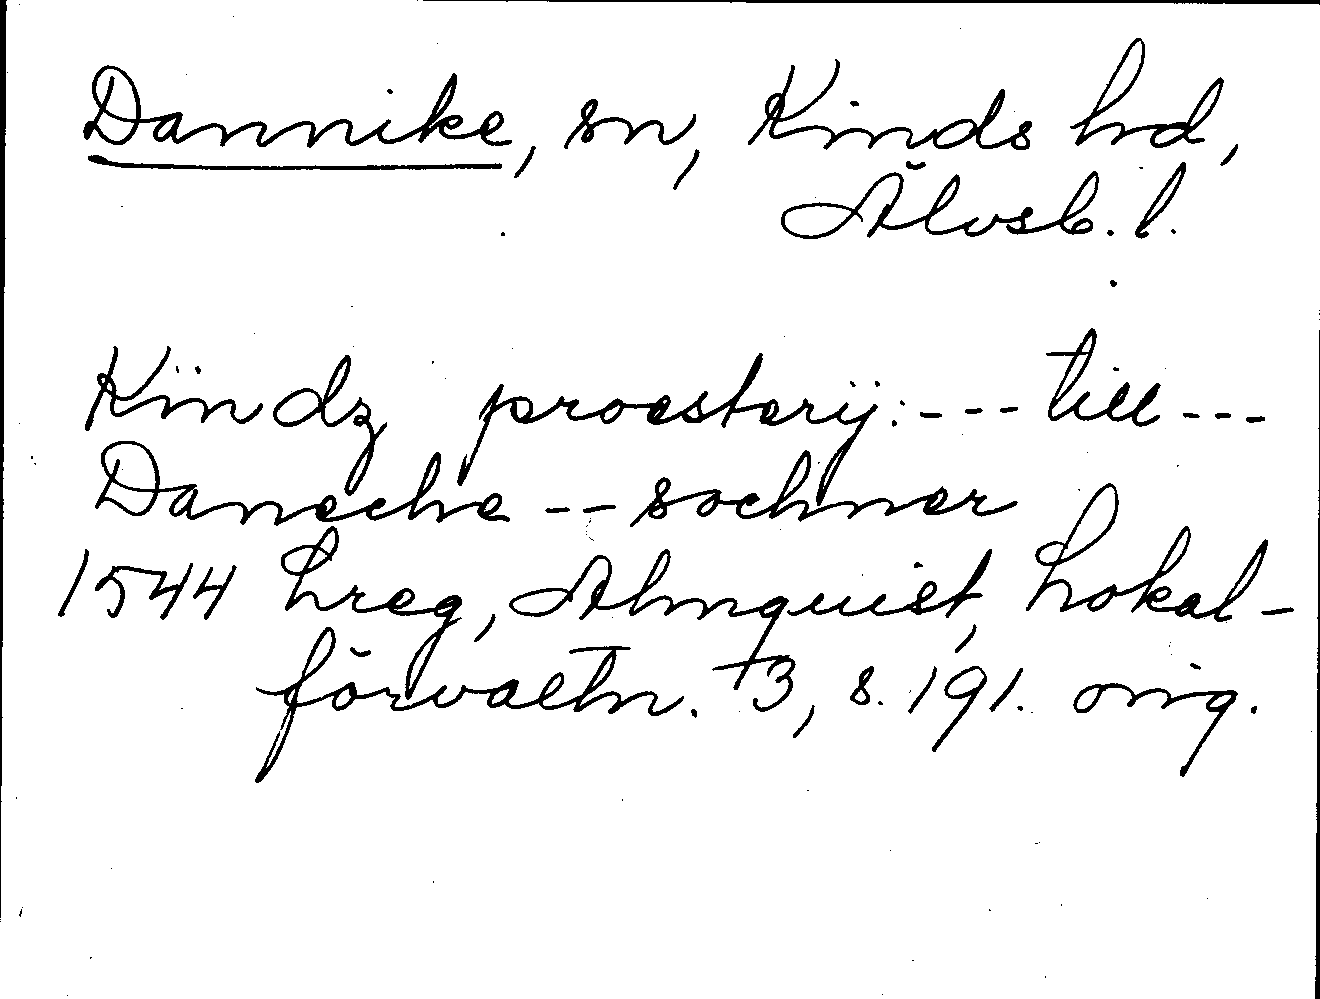 Dannike, sn, Kinds hd,
Älvsb. l.
Kindz proesterij: --- till ---
Daneche -- sochner
1544 Lreg, Almquist, Lokal-
förvaltn. +3, s. 191. orig.